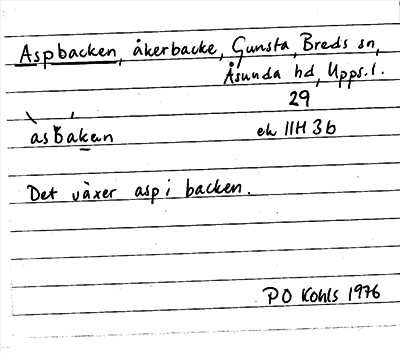 Aspbacken, åkerbacke, Gunsta, Breds sn,
Åsunda hd, Upps.l.
29
àsbákæn ek 11H 3b
Det växer asp i backen.
PO Kohls 1976